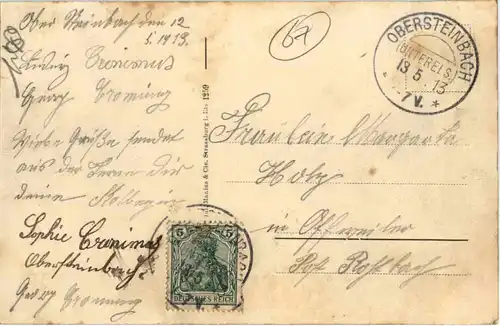 Ober Steinbach den 12
5. 1913
Ludwig Cronimus
Georg Croming
Liebe Grüße sendet
aus der Ferne dir
deine
Sophie Cronimus
Obersteinbach
Georg Croming
67
OBERSTEINBACH
(UNTERELS.)
13 5 13
7 V. *
Fräulein Margareta
Holz
in Offweiler
Post Rothbach
5 5
DEUTSCHES REICH
Manias & Cie. Strassburg i. Els. 1259